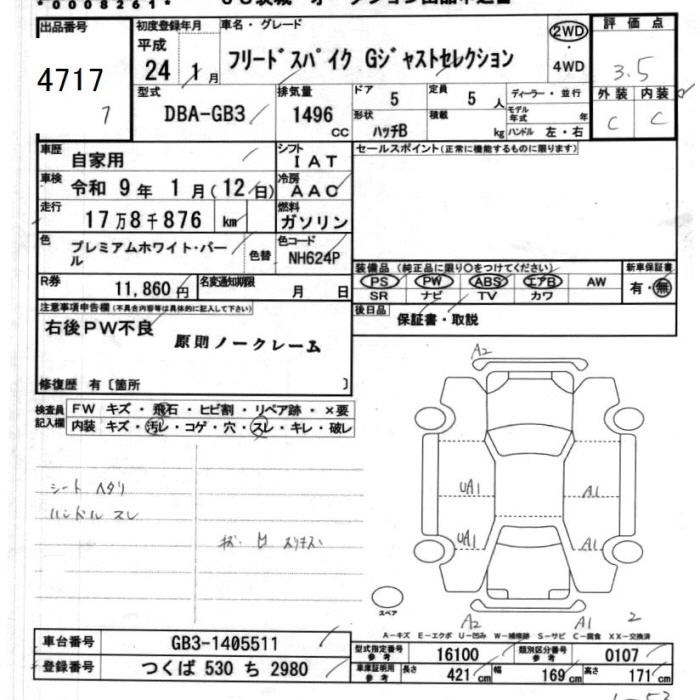 *0008261*
出品番号 4717
初度登録年月 平成 24年 1月
車名・グレード フリードスパイク Gジャストセレクション
2WD・4WD
評価点 3.5
外装 C 内装 C
型式 DBA-GB3
排気量 1496 CC
ドア 5 定員 5人
形状 ハッチB 積載 kg
ディーラー・並行
モデル年式 年
ハンドル 左・右
車歴 自家用
シフト IAT
セールスポイント(正常に機能するものに限ります)
車検 令和 9年 1月(12日)
冷房 AAC
走行 17万8千876 km
燃料 ガソリン
色 プレミアムホワイト・パール
色替
色コード NH624P
R券 11,860円
名変通知期限 月 日
装備品(純正品に限り○をつけてください)
PS PW ABS エアB AW
SR ナビ TV カワ
新車保証書 有・無
注意事項申告欄(不具合内容等は具体的に記入して下さい)
右後PW不良
原則ノークレーム
後日品 保証書・取説
修復歴 有〔箇所 〕
検査員記入欄
FW キズ・飛石・ヒビ割・リペア跡・×要
内装 キズ・汚レ・コゲ・穴・スレ・キレ・破レ
シート ヘタリ
ハンドル スレ
スリキズ
A2
UA1 A1
UA1 A1
A2 A1 2
スペア
A-キズ E-エクボ U-凹み W-補修跡 S-サビ C-腐食 XX-交換済
車台番号 GB3-1405511
登録番号 つくば 530 ち 2980
型式指定番号 参考 16100
類別区分番号 参考 0107
車庫証明用 参考 長さ 421cm 幅 169cm 高さ 171cm